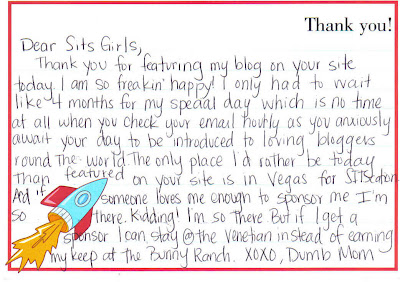 Thank you!
Dear Sits Girls,
Thank you for featuring my blog on your site
today. I am so freakin' happy! I only had to wait
like 4 months for my special day which is no time
at all when you check your email hourly as you anxiously
await your day to be introduced to loving bloggers
round the world. The only place I'd rather be today
than featured on your site is in Vegas for
And if someone loves me enough to sponsor me I'm
so there. Kidding! I'm so there But if I get a
sponsor I can stay @ the Venetian instead of earning
my keep at the Bunny Ranch. XOXO, Dumb Mom